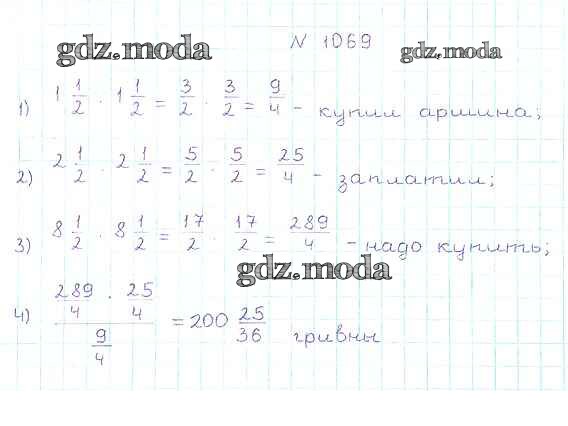 gdz.moda N 1069 gdz.moda
1) 1 1/2 · 1 1/2 = 3/2 · 3/2 = 9/4 - купил аршина;
2) 2 1/2 · 2 1/2 = 5/2 · 5/2 = 25/4 - заплатил;
3) 8 1/2 · 8 1/2 = 17/2 · 17/2 = 289/4 - надо купить;
gdz.moda
4) (289/4 · 25/4) / (9/4) = 200 25/36 гривны